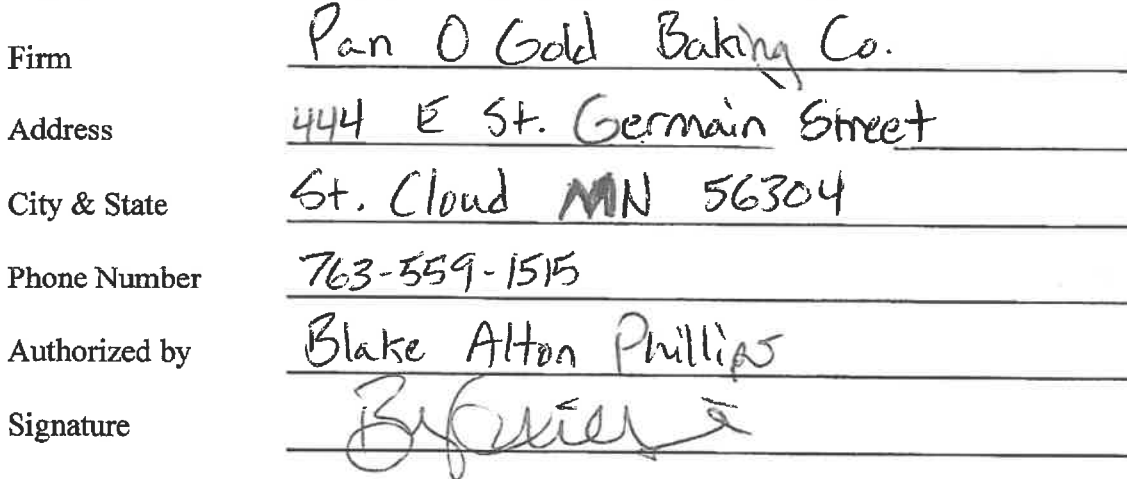 Firm Pan O Gold Baking Co.
Address 444 E St. Germain Street
City & State St. Cloud MN 56304
Phone Number 763-559-1515
Authorized by Blake Alton Phillips
Signature